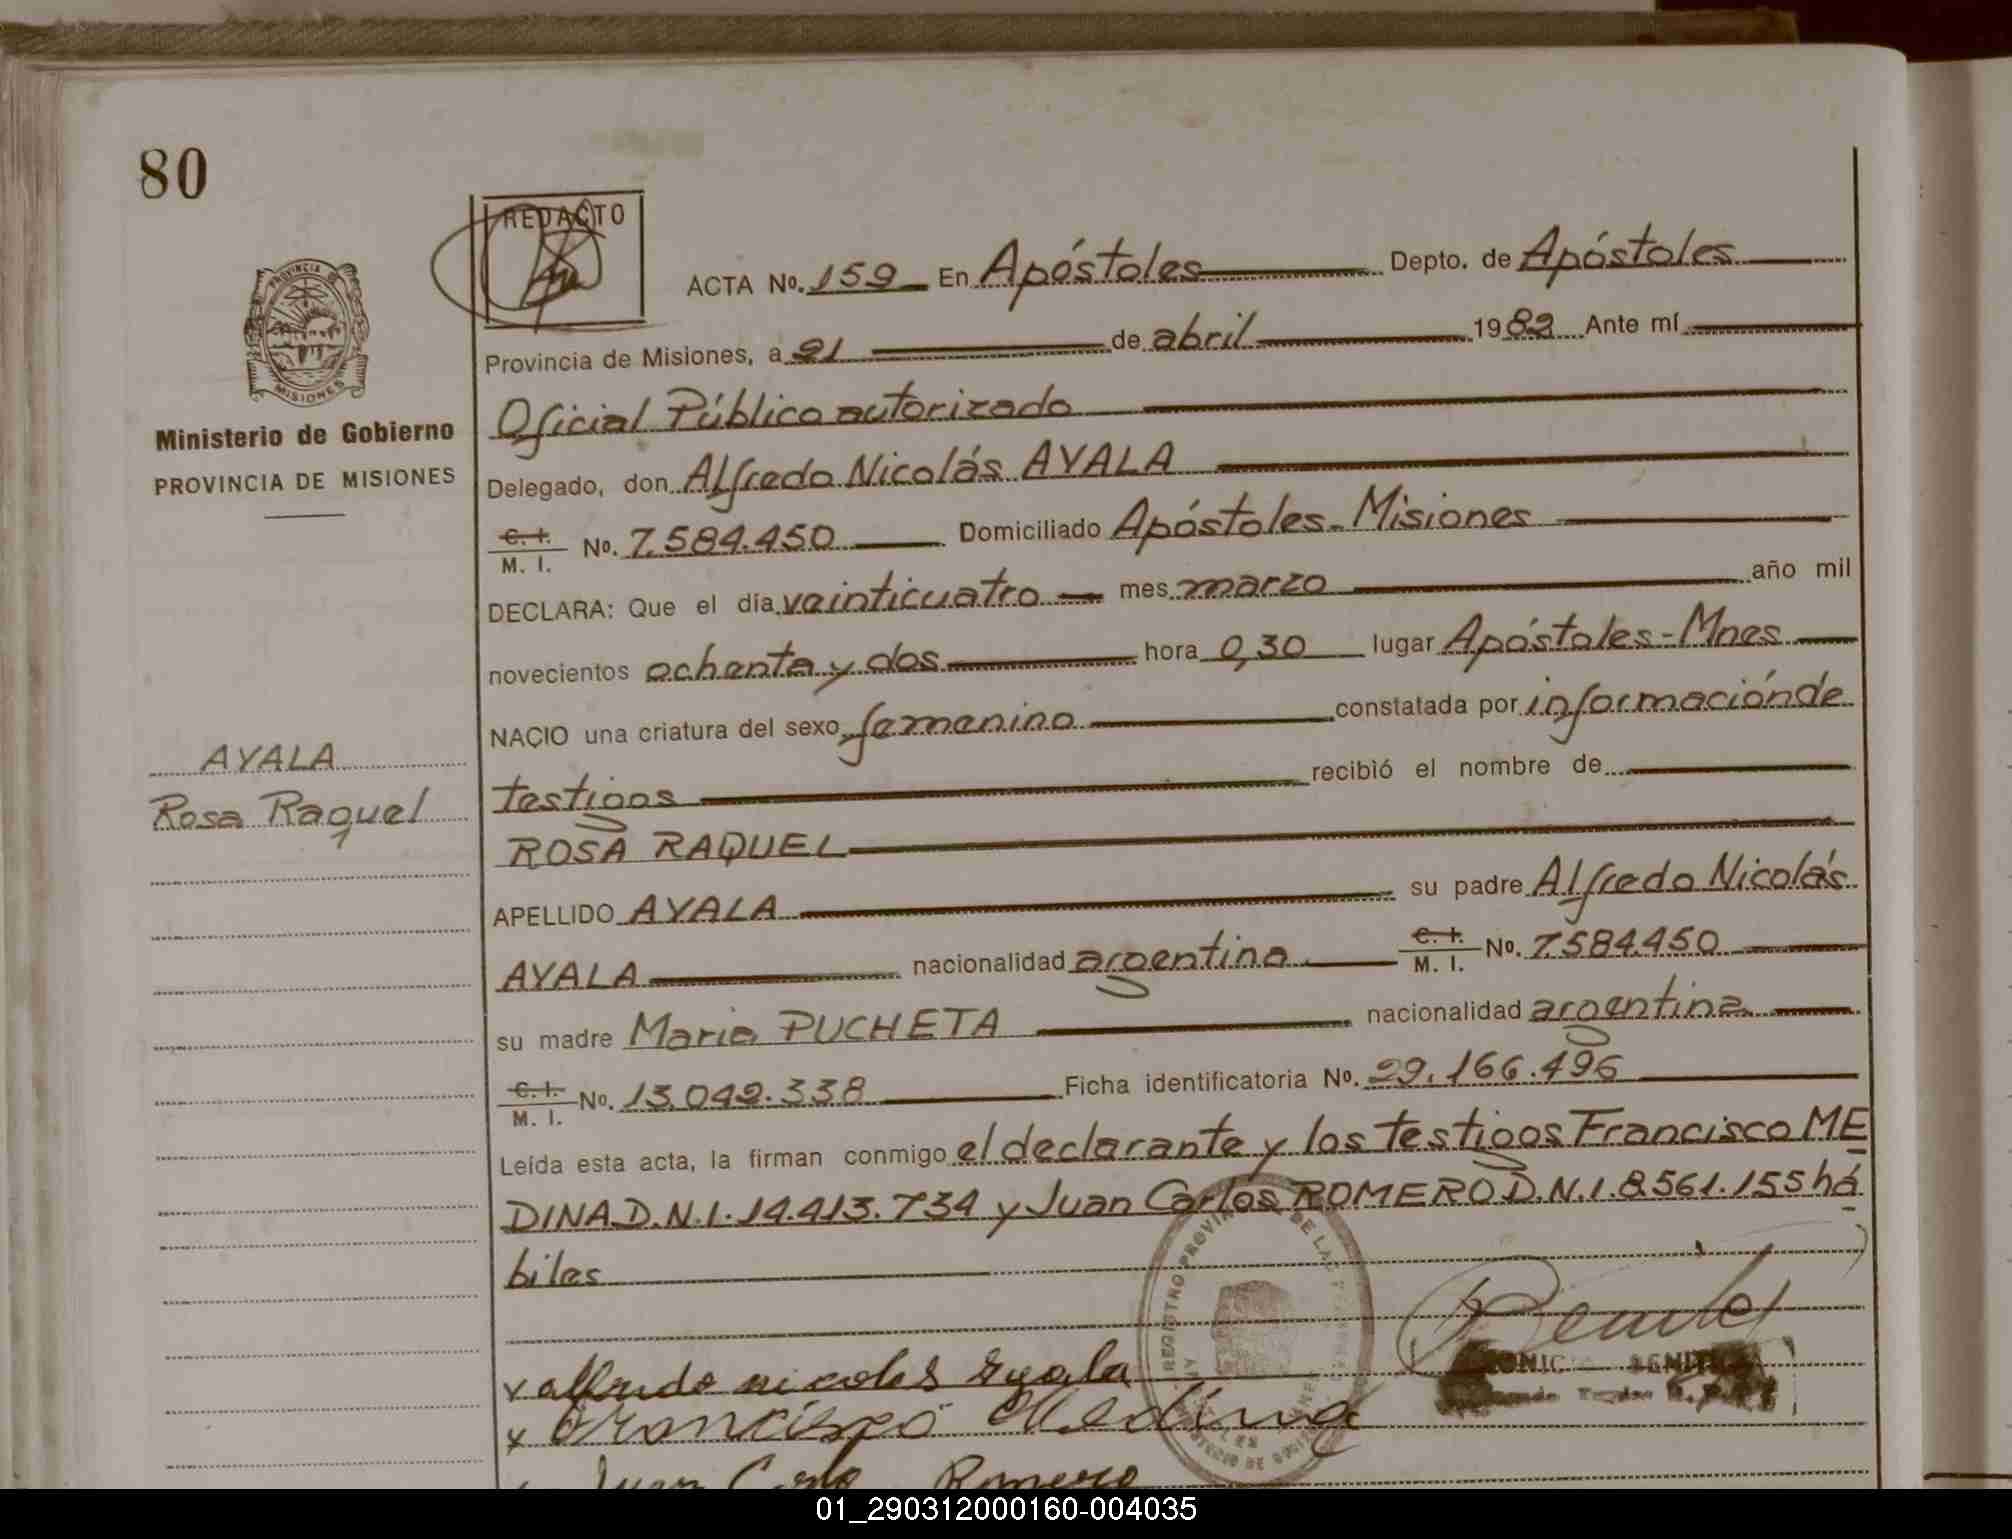 80
REDACTO
PROVINCIA DE
MISIONES
Ministerio de Gobierno
PROVINCIA DE MISIONES
AYALA
Rosa Raquel
ACTA No. 159 En Apóstoles Depto. de Apóstoles
Provincia de Misiones, a 21 de abril 1982 Ante mí
Oficial Público autorizado
Delegado, don Alfredo Nicolás AYALA
C. I. M. I. No. 7.584.450 Domiciliado Apóstoles - Misiones
DECLARA: Que el día veinticuatro mes marzo año mil
novecientos ochenta y dos hora 0,30 lugar Apóstoles - Mnes
NACIO una criatura del sexo femenino constatada por información de
testigos recibió el nombre de
ROSA RAQUEL
APELLIDO AYALA su padre Alfredo Nicolás
AYALA nacionalidad argentina C. I. M. I. No. 7.584.450
su madre Maria PUCHETA nacionalidad argentina
C. I. M. I. No. 13.042.338 Ficha identificatoria No. 29.166.496
Leída esta acta, la firman conmigo el declarante y los testigos Francisco ME
DINA D.N.I. 14.413.734 y Juan Carlos ROMERO D.N.I. 8.561.155 há
biles
x alfredo nicolas Ayala
x Francisco Medina
Juan Carlo Romero
REGISTRO PROVIN DE LA
01_290312000160-004035